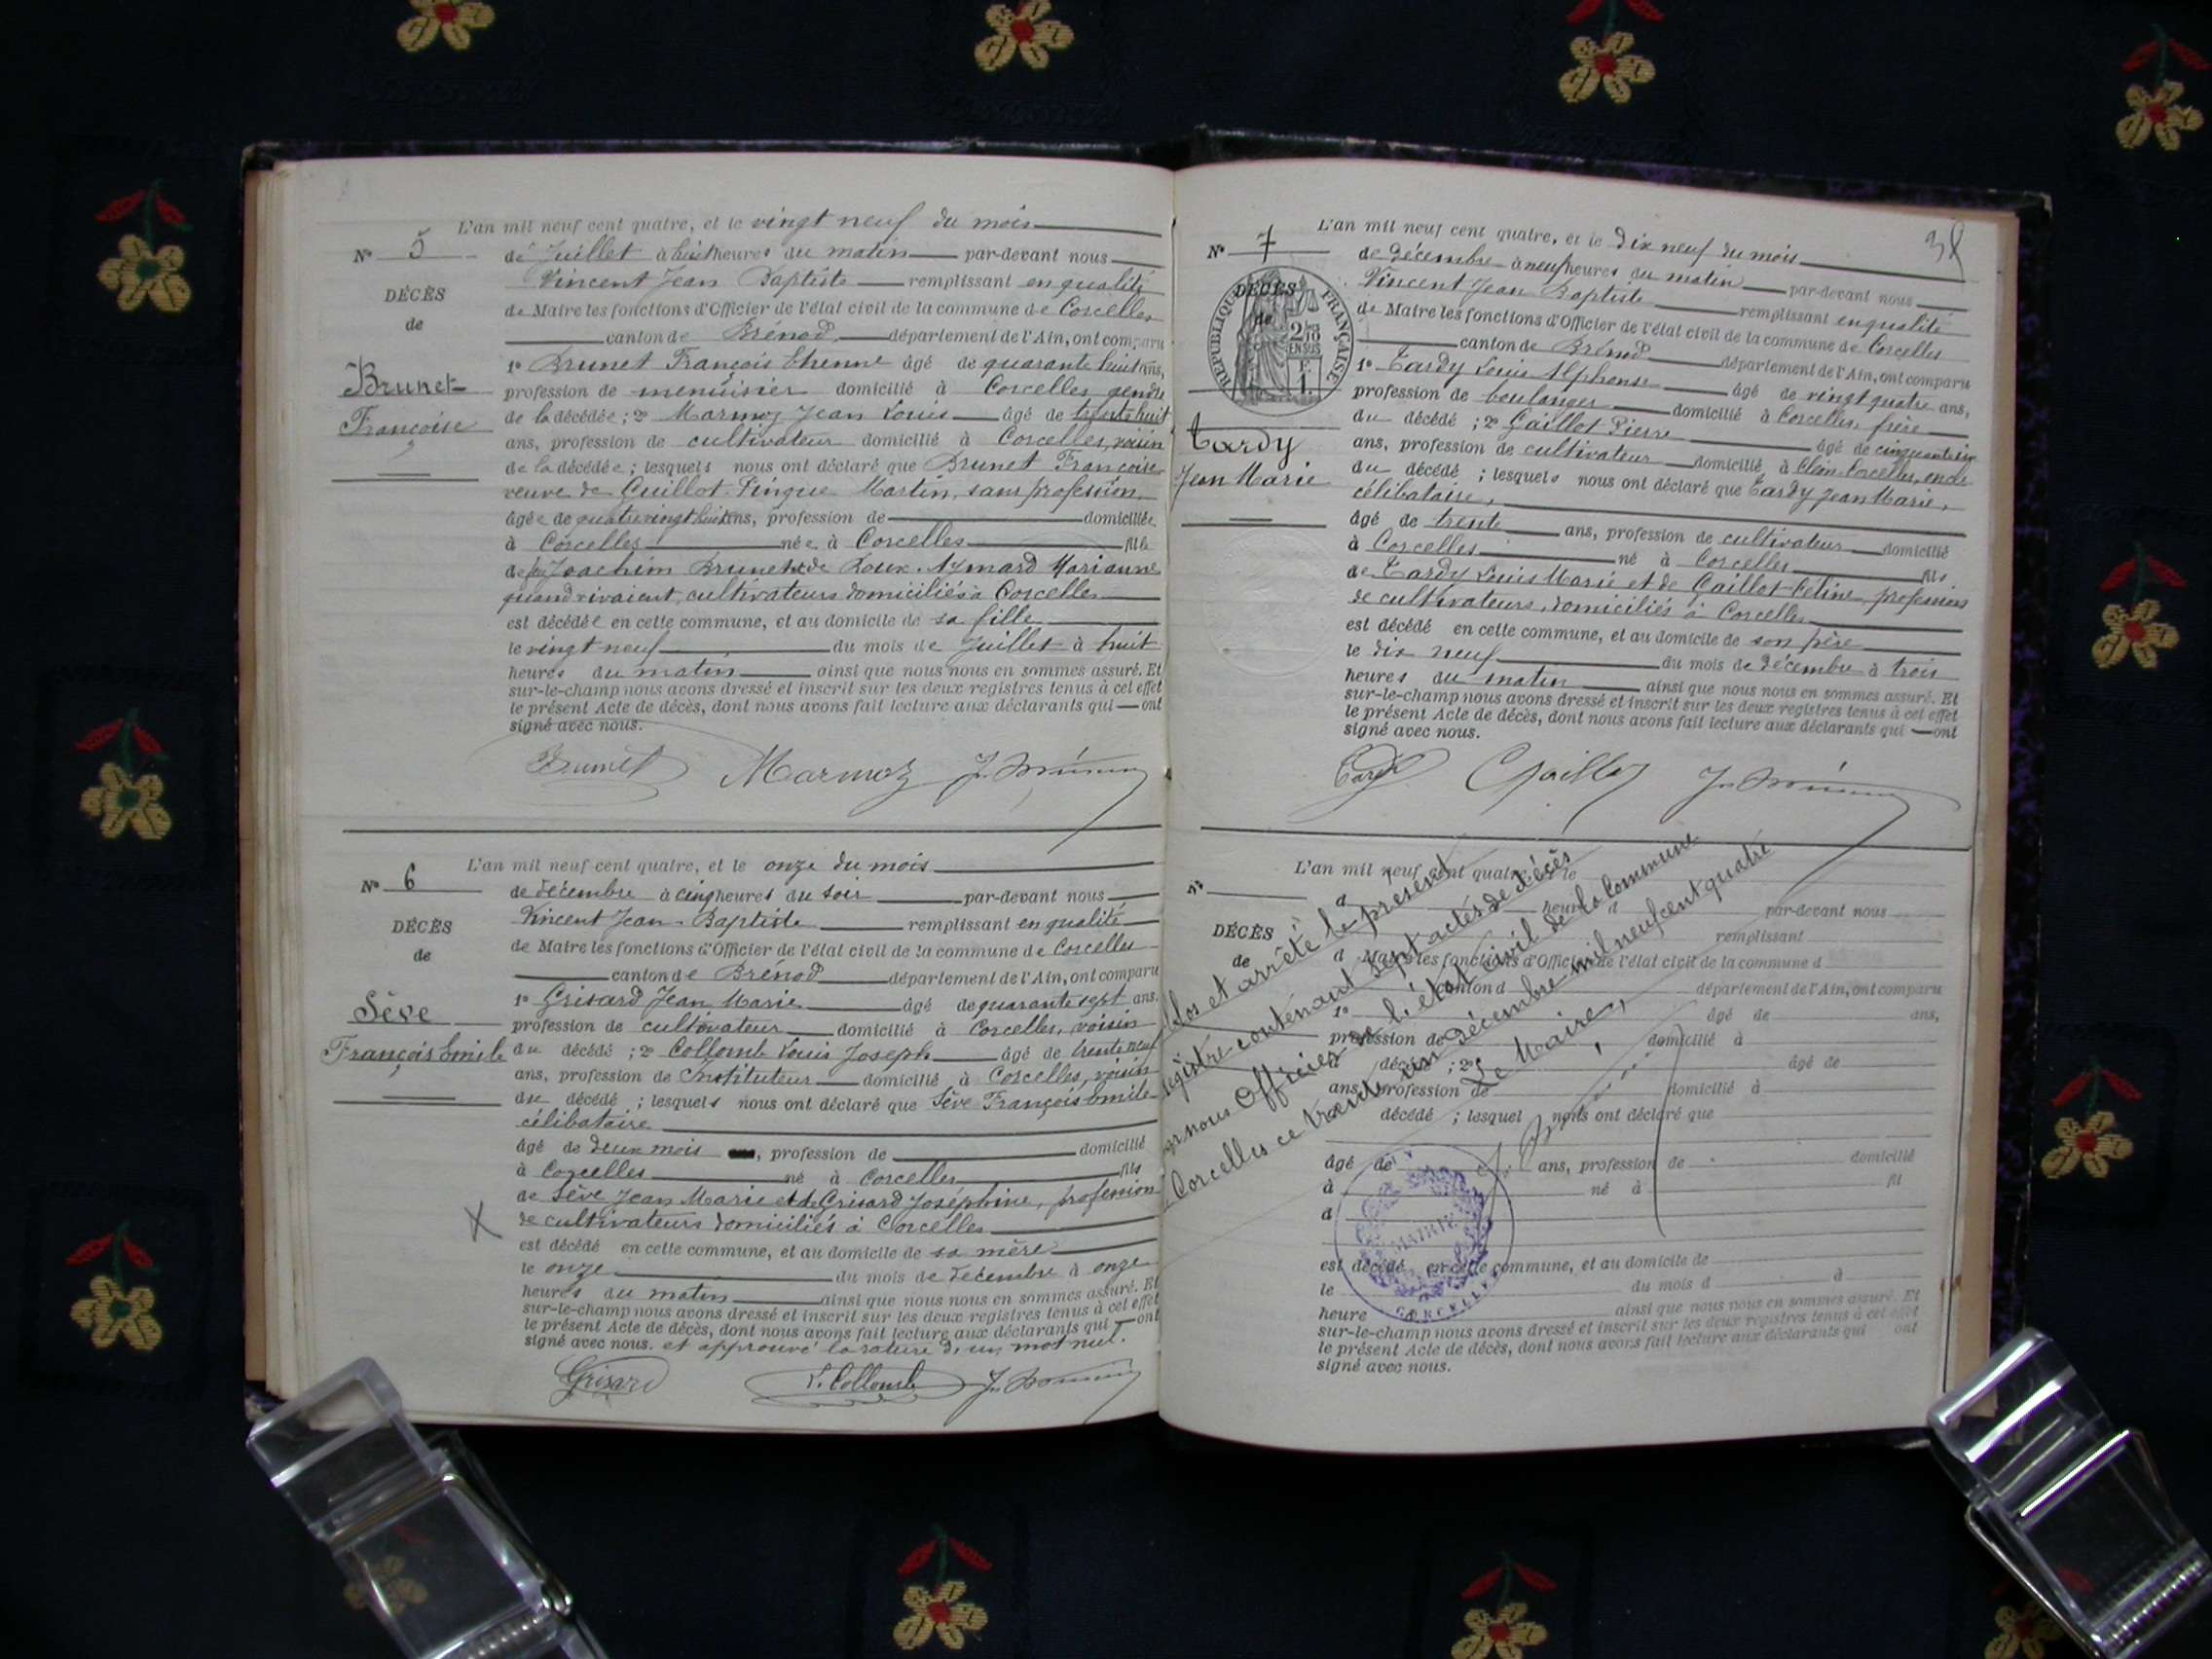 L'an mil neuf cent quatre, et le vingt neuf du mois
N° 5
de Juillet à huit heures du matin par-devant nous
Vincent Jean Baptiste remplissant en qualité
DÉCÈS
de Maire les fonctions d'Officier de l'état civil de la commune de Corcelles
de
canton de Brénod département de l'Ain, ont comparu
1° Brunet François Etienne âgé de quarante huit ans,
Brunet
profession de menuisier domicilié à Corcelles gendre
Françoise
de la décédée ; 2° Marmoz Jean Louis âgé de trente huit
ans, profession de cultivateur domicilié à Corcelles, voisin
de la décédée ; lesquels nous ont déclaré que Brunet Françoise
veuve de Guillot Pingue Martin, sans profession
âgée de quatre vingt huit ans, profession de domiciliée
à Corcelles née à Corcelles fille
de feu Joachim Brunet et de Roux Aymard Marianne
quand vivaient, cultivateurs domiciliés à Corcelles
est décédée en cette commune, et au domicile de sa fille
le vingt neuf du mois de Juillet à huit
heures du matin ainsi que nous nous en sommes assuré. Et
sur-le-champ nous avons dressé et inscrit sur les deux registres tenus à cet effet
le présent Acte de décès, dont nous avons fait lecture aux déclarants qui ont
signé avec nous.
Brunet Marmoz
L'an mil neuf cent quatre, et le onze du mois
N° 6
de décembre à cinq heures du soir par-devant nous
DÉCÈS
Vincent Jean-Baptiste remplissant en qualité
de
de Maire les fonctions d'Officier de l'état civil de la commune de Corcelles
canton de Brénod département de l'Ain, ont comparu
Sève
1° Grisard Jean Marie âgé de quarante sept ans.
profession de cultivateur domicilié à Corcelles, voisin
François Emile
du décédé ; 2° Collomb Louis Joseph âgé de trente neuf
ans, profession de Instituteur domicilié à Corcelles, voisin
du décédé ; lesquels nous ont déclaré que Sève François Emile
célibataire
âgé de deux mois , profession de domicilié
à Corcelles né à Corcelles fils
de Sève Jean Marie et de Grisard Joséphine, profession
de cultivateurs domiciliés à Corcelles
est décédé en cette commune, et au domicile de sa mère
le onze du mois de décembre à onze
heures du matin ainsi que nous nous en sommes assuré. Et
sur-le-champ nous avons dressé et inscrit sur les deux registres tenus à cet effet
le présent Acte de décès, dont nous avons fait lecture aux déclarants qui ont
signé avec nous. et approuvé la rature d'un mot nul.
Grisard L. Collomb
38
L'an mil neuf cent quatre, et le dix neuf du mois
N° 7
de décembre à neuf heures du matin par-devant nous
Vincent Jean Baptiste remplissant en qualité
DÉCÈS
de
RÉPUBLIQUE FRANÇAISE
de Maire les fonctions d'Officier de l'état civil de la commune de Corcelles
canton de Brénod département de l'Ain, ont comparu
1° Tardy Louis Alphonse âgé de vingt quatre ans,
profession de boulanger domicilié à Corcelles, frère
du décédé ; 2° Gaillot Pierre âgé de cinquante six
Tardy
Jean Marie
ans, profession de cultivateur domicilié à Corcelles, oncle
du décédé ; lesquels nous ont déclaré que Tardy Jean Marie,
célibataire,
âgé de trente ans, profession de cultivateur domicilié
à Corcelles né à Corcelles fils
de Tardy Louis Marie et de Gaillot Céline profession
de cultivateurs, domiciliés à Corcelles
est décédé en cette commune, et au domicile de son père
le dix neuf du mois de décembre à trois
heures du matin ainsi que nous nous en sommes assuré. Et
sur-le-champ nous avons dressé et inscrit sur les deux registres tenus à cet effet
le présent Acte de décès, dont nous avons fait lecture aux déclarants qui ont
signé avec nous.
Tardy Gaillot
L'an mil neuf cent quatre, et le
N°
d heure d par-devant nous
DÉCÈS
remplissant
de
d Maire les fonctions d'Officier de l'état civil de la commune d
canton d département de l'Ain, ont comparu
1° âgé de ans,
profession de domicilié à
d décédé ; 2° âgé de
ans, profession de domicilié à
décédé ; lesquel nous ont déclaré que
âgé de ans, profession de domicilié
à né à fil
d
est décédé en cette commune, et au domicile de
le du mois d à
heure ainsi que nous nous en sommes assuré. Et
sur-le-champ nous avons dressé et inscrit sur les deux registres tenus à cet effet
le présent Acte de décès, dont nous avons fait lecture aux déclarants qui ont
signé avec nous.
Clos et arrêté le présent
registre contenant sept actes de décès
par nous Officier de l'état civil de la Commune
Corcelles ce trente un décembre mil neuf cent quatre
Le Maire,
MAIRIE
CORCELLES